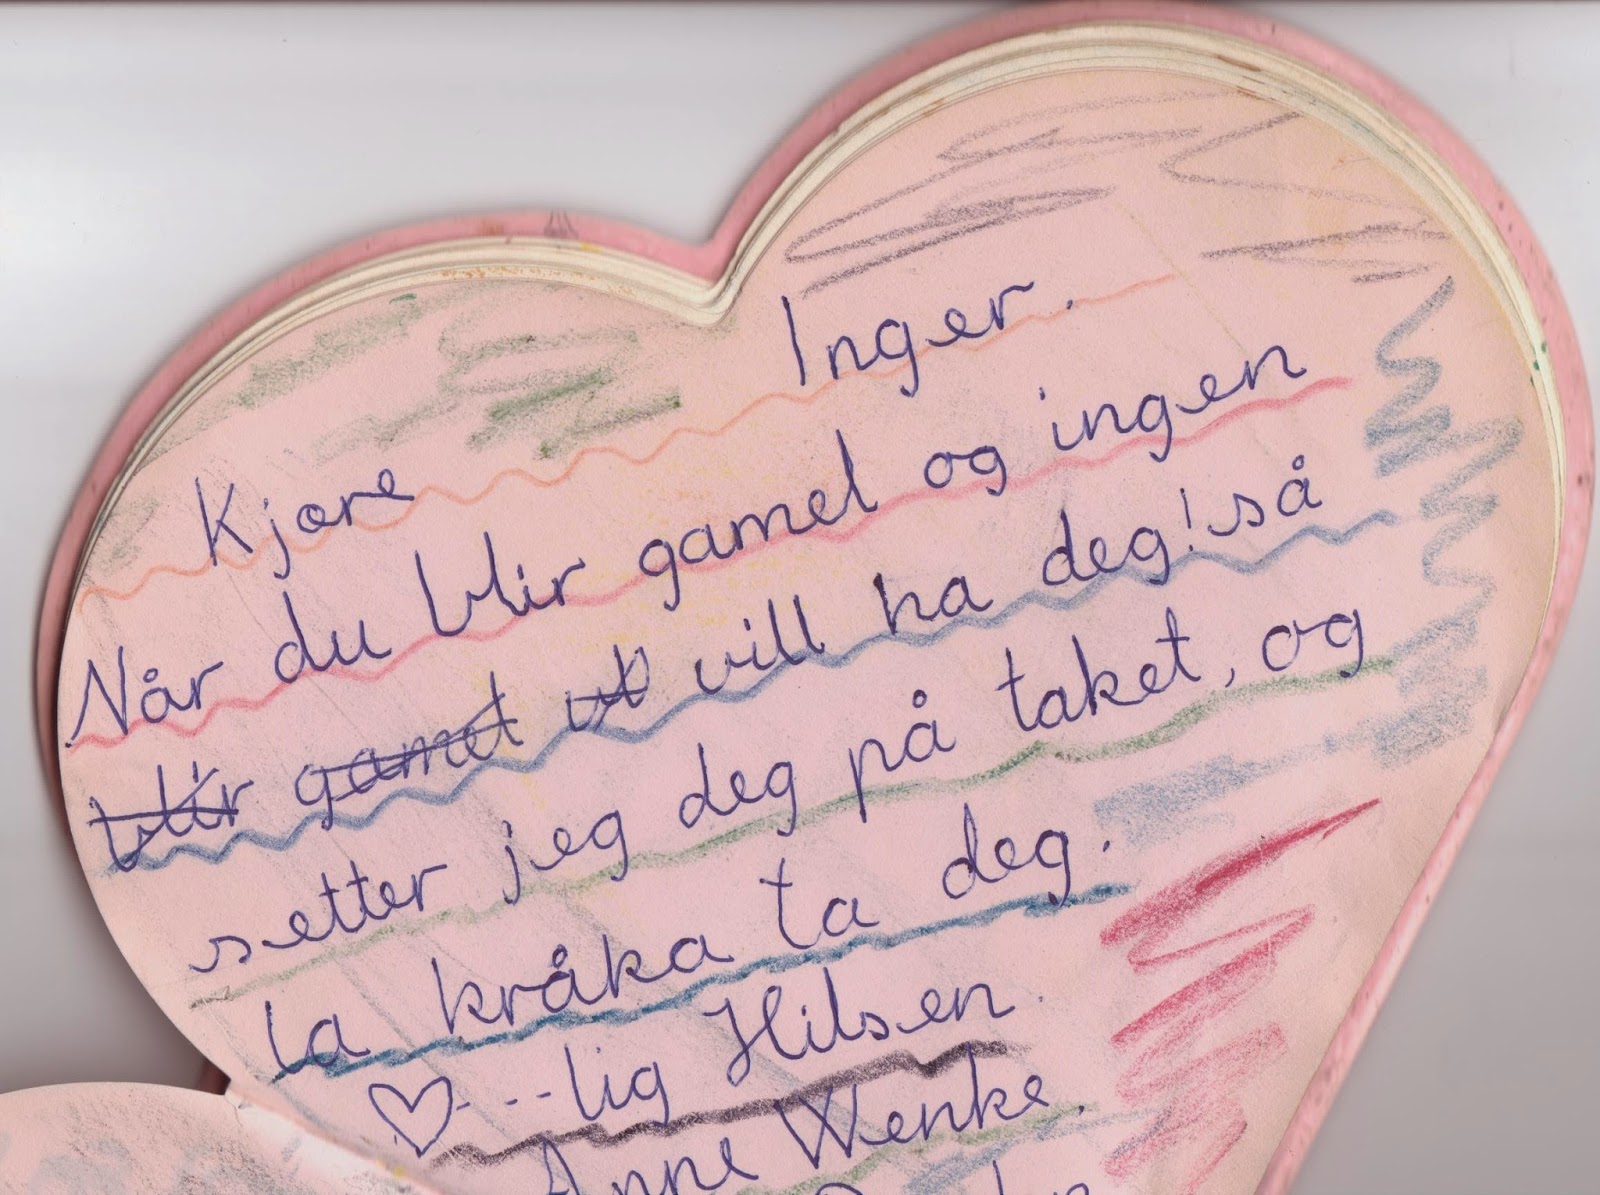 Kjære Inger.
Når du blir gamel og ingen
blir gamel vil vill ha deg! så
setter jeg deg på taket, og
la kråka ta deg.
♡---lig Hilsen
Anne Wenke.